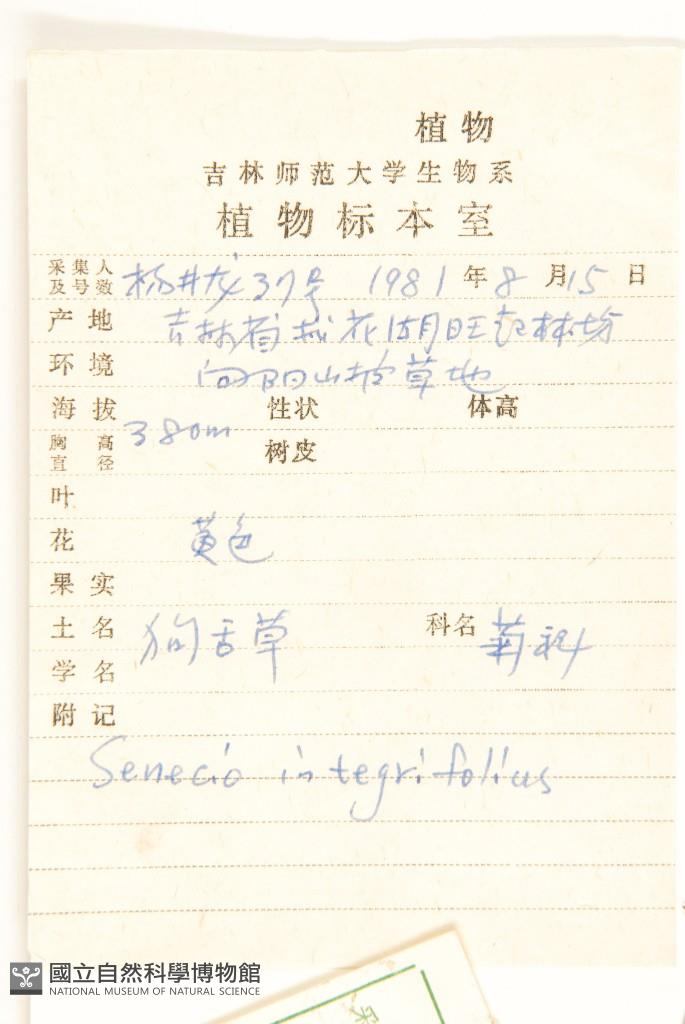 植物
吉林师范大学生物系
植物标本室
采集人
及号数 杨井龙37号 1981年8月15日
产地 吉林省 花湖旺起林场
环境 向阳山坡草地
海拔 380m 性状 体高
胸高
直径 树皮
叶
花 黄色
果实
土名 狗舌草 科名 菊科
学名
附记
Senecio integrifolius
國立自然科學博物館
NATIONAL MUSEUM OF NATURAL SCIENCE
采